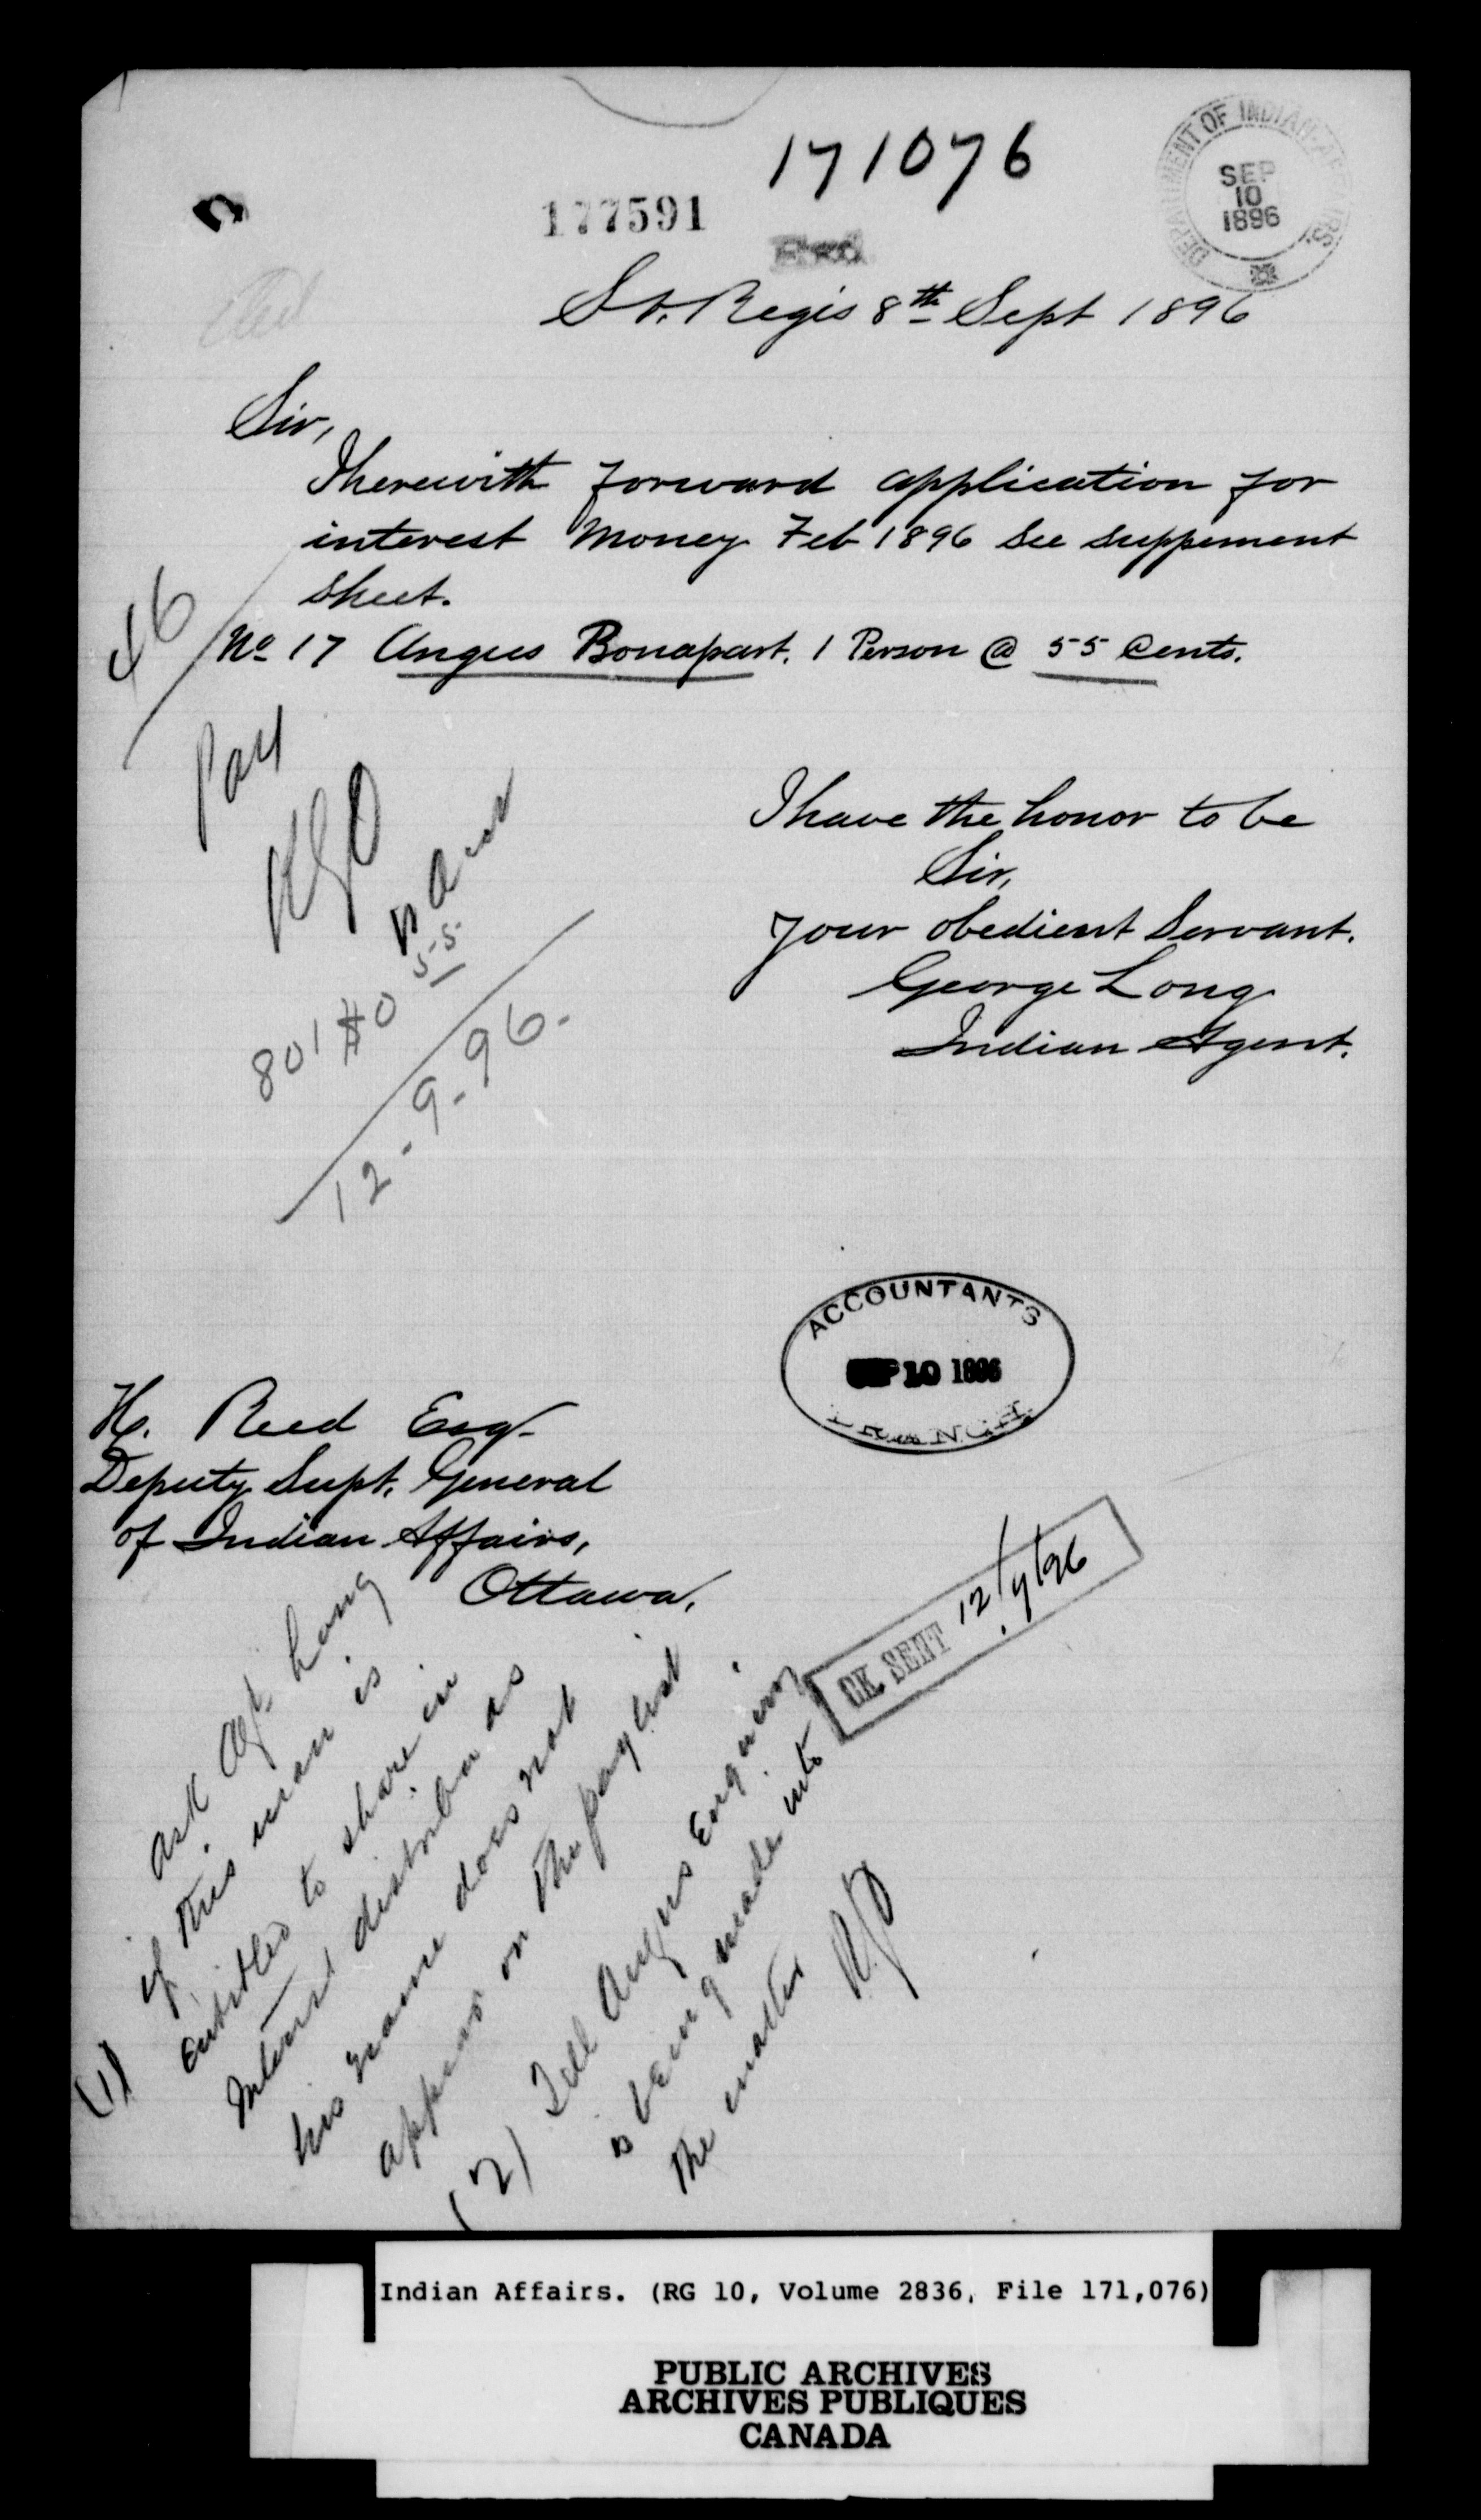 171076
177591
DEPARTMENT OF INDIAN AFFAIRS.
SEP
10
1896
St. Regis 8th Sept 1896
Sir,
I herewith forward application for
interest Money Feb 1896 See suppement
sheet.
No 17 Angus Bonapart. 1 Person @ 55 Cents.
46
Pay
55
801
12-9-96.
I have the honor to be
Sir,
Your obedient Servant.
George Long
Indian Agent.
ACCOUNTANTS
SEP 10 1896
BRANCH.
H. Reed Esq
Deputy Supt. General
of Indian Affairs,
Ottawa,
CK. SENT 12/9/96
(1) ask Agt. Long
if this man is
entitled to share in
Interest distribn as
his name does not
appear on the paylist
(2) Tell Angus Enquiry
is being made into
the matter
Indian Affairs. (RG 10, Volume 2836, File 171,076)
PUBLIC ARCHIVES
ARCHIVES PUBLIQUES
CANADA